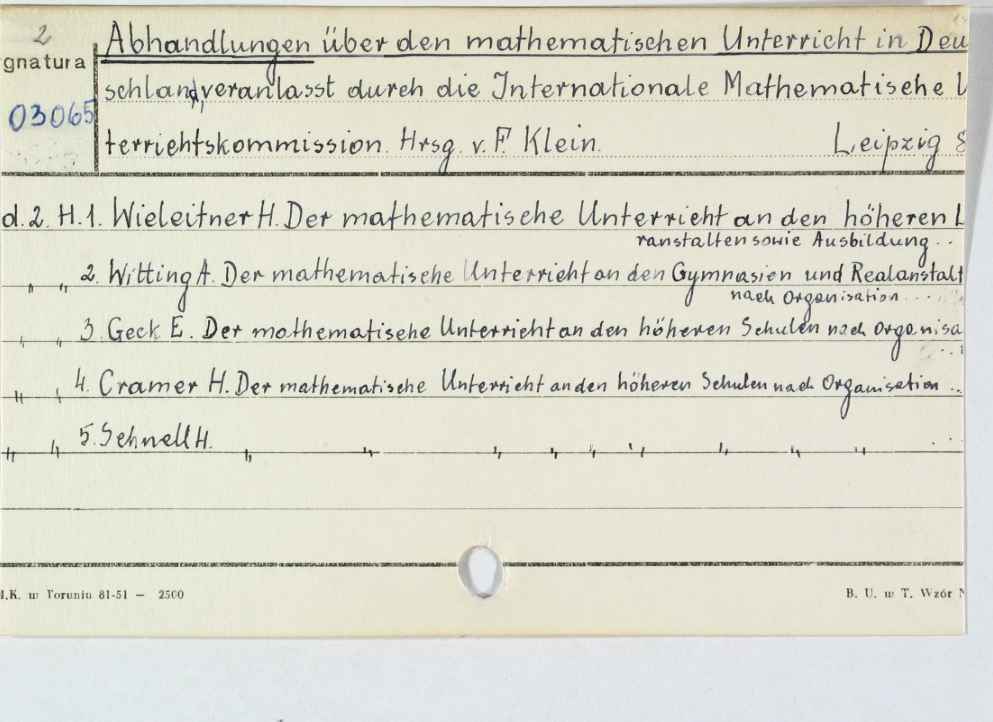 2
gnatura
03065
Abhandlungen über den mathematischen Unterricht in Deu
schland, veranlasst durch die Internationale Mathematische U
terrichtskommission. Hrsg. v. F. Klein. Leipzig 8
d. 2. H. 1. Wieleitner H. Der mathematische Unterricht an den höheren L
ranstalten sowie Ausbildung ...
" " 2. Witting A. Der mathematische Unterricht an den Gymnasien und Realanstalt
nach Organisation ...
" " 3. Geck E. Der mathematische Unterricht an den höheren Schulen nach Organisa
...
" " 4. Cramer H. Der mathematische Unterricht an den höheren Schulen nach Organisation ...
" " 5. Schnell H. " " " " " " " " " ...
I.K. w Toruniu 81-51 — 2500
B. U. w T. Wzór N